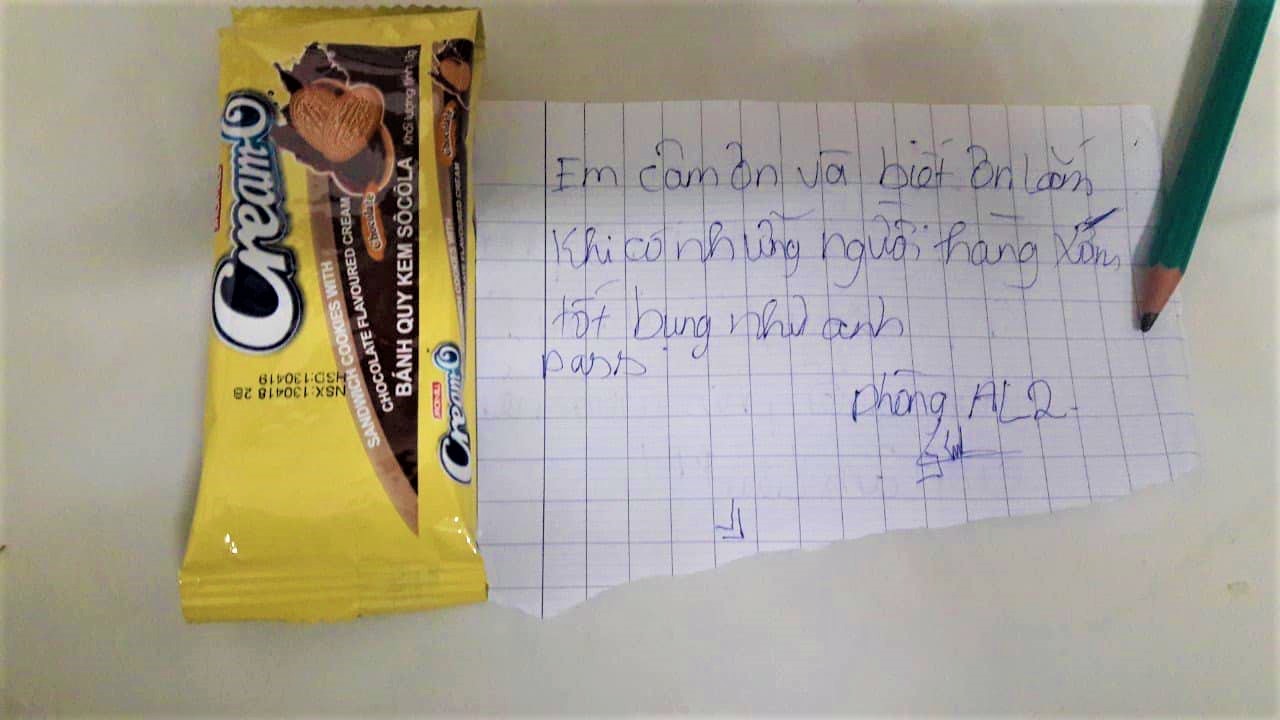 Cream-O
SANDWICH COOKIES WITH
CHOCOLATE FLAVOURED CREAM
BÁNH QUY KEM SÔCÔLA
Khối lượng tịnh
Chocolate
NSX:130418 2B
HSD:130419
Chocolate
Cream-O
Em cảm ơn và biết ơn lắm
Khi có những người hàng xóm
tốt bụng như anh
pass
phòng AL2.